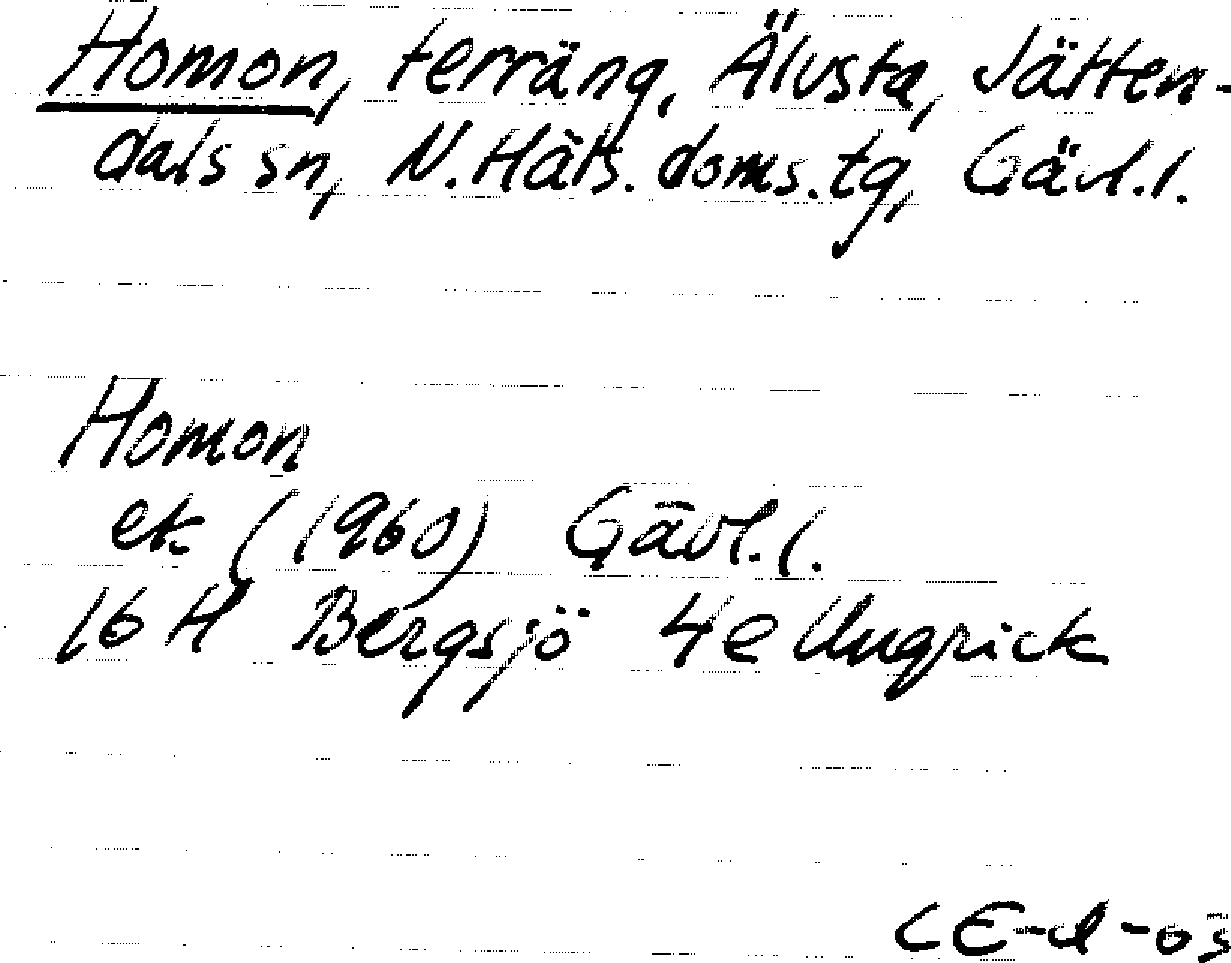 Homon, terräng, Älvsta, Jätten-
dals sn, N. Häls. doms. tg, Gävl. l.
Homon
ek (1960) Gävl. l.
16 H Bergsjö 4e
CE-d-